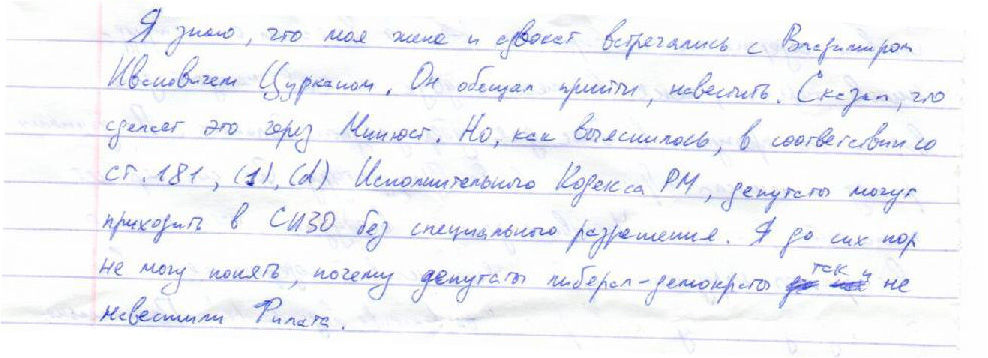 Я знаю, что моя жена и адвокат встречались с Владимиром
Ивановичем Цурканом. Он обещал прийти, навестить. Сказал, что
сделает это через Минюст. Но, как выяснилось, в соответствии со
ст. 181, (1), (d) Исполнительного Кодекса РМ, депутаты могут
приходить в СИЗО без специального разрешения. Я до сих пор
не могу понять, почему депутаты либерал-демократы так и не
навестили Филата.